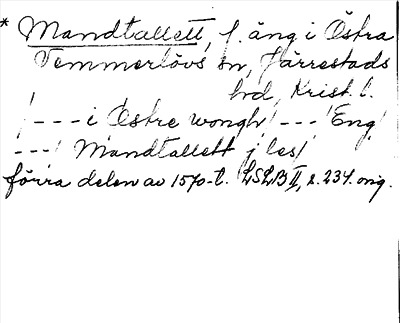 * Mandtallett, f. äng i Östra
Temmerlövs sn, Järrestads
hd, Krist. l.
/---i Østre wongh/---/Eng/
---/ Mandtallett j les/
förra delen av 1570-t. LSLB II, s. 234. orig.